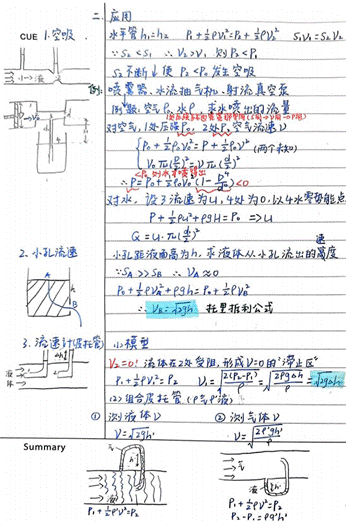 二、应用
CUE 1.空吸
水平管 h₁=h₂ P₁+½ρV₁²=P₂+½ρV₂² S₁V₁=S₂V₂
∵S₂<S₁ ∴V₂>V₁ 则P₂<P₁
S₂不断↓使P₂<P₀发生空吸
例:喷雾器、水流抽气机、射流真空泵
求水喷出的流量
对空气,1处压强P₀,2处P,空气流速V
P₀+½ρ₀V₀²=P+½ρ₀V²
(两个未知)
<P₀
∴P=P₀+½ρ₀V₀²(1-D⁴/d⁴)<0
对水,设3流速为u,4处为0,以4水零势能点
P+½ρu²+ρgH=P₀ ⇒u
2.小孔流速
小孔距液面高为h,求液体从小孔流出的速度
∵S_A>>S_B ∴V_A≈0
P₀+½ρV_A²+ρgh=P₀+½ρV_B²
∴V_B=√2gh 托里拆利公式
3.流速计(皮托管)
(1)模型
V₂=0! 流体在2处受阻,形成V=0的"滞止区"
P₁+½ρV₁²=P₂ V₁=√2(P₂-P₁)/ρ=√2ρgΔh/ρ=√2gΔh
(2)组合皮托管(ρ气ρ'液)
①测液体V ②测气体V
V=√2gh V=√2ρ'gh/ρ
Summary
P₁+½ρ'V²=P₂
P₁+½ρV²=P₂
P₂-P₁=ρ'gh